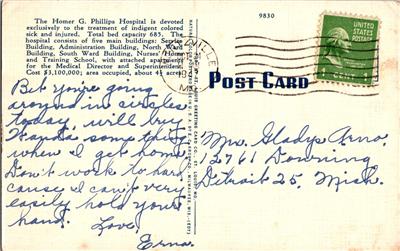 The Homer G. Phillips Hospital is devoted
exclusively to the treatment of indigent colored
sick and injured. Total bed capacity 685. The
hospital consists of five main buildings: Service
Building, Administration Building, North Ward
Building, South Ward Building, Nurses' Home
and Training School, with attached apartments
for the Medical Director and Superintendent.
Cost $3,100,000; area occupied, about 4½ acres.
9830
UNITED
STATES
POSTAGE
1 CENT
VILLE
MO.
POST CARD
Bet you're going
around in circles
today, will buy
some thing
when I get home.
Don't work to hard
cause I can't very
easily hold your
hand.
Love,
Erna.
Mrs. Gladys Arno,
2761 Downing
Detroit 25, Mich.